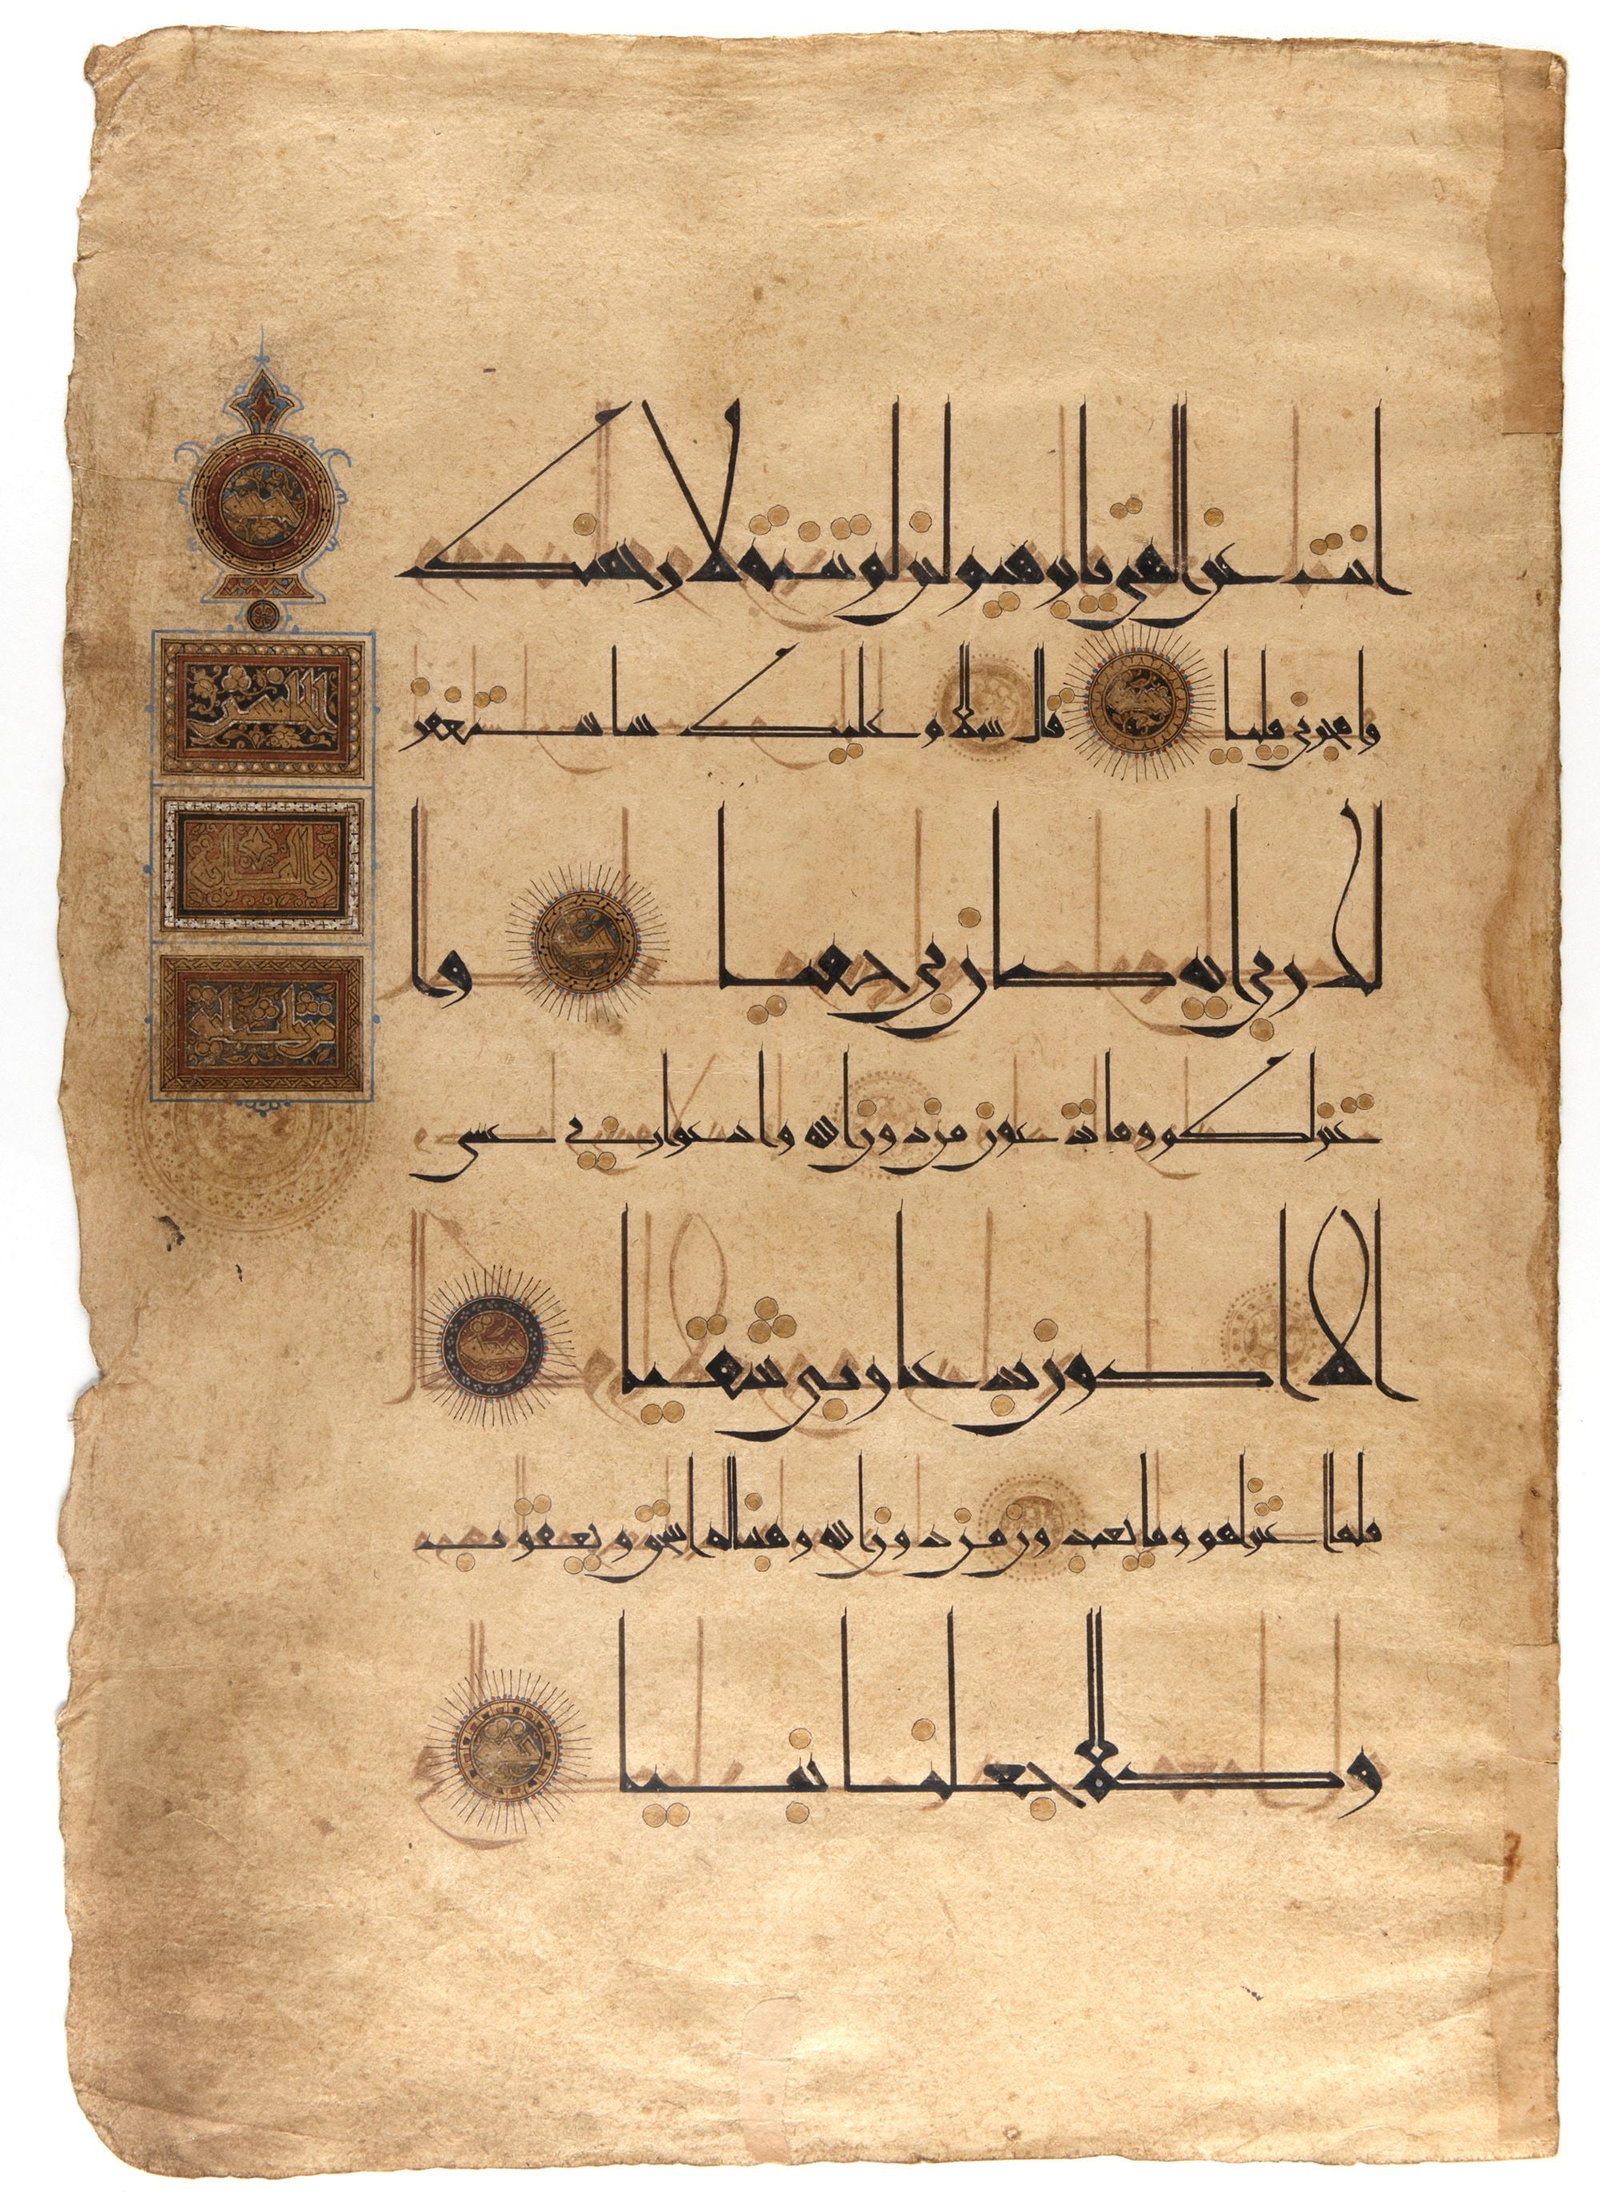 انت عن الهتي يابرهيم لين لم تنته لارجمنك
واهجرني مليا قال سلام عليك ساستغفر
لك ربي انه كان بي حفيا وا
عتزلكم وما تدعون من دون الله وادعوا ربي عسى
الا اكون بدعا ربي شقيا
فلما اعتزلهم وما يعبدون من دون الله وهبنا له اسحق ويعقوب
وكلا جعلنا نبيا